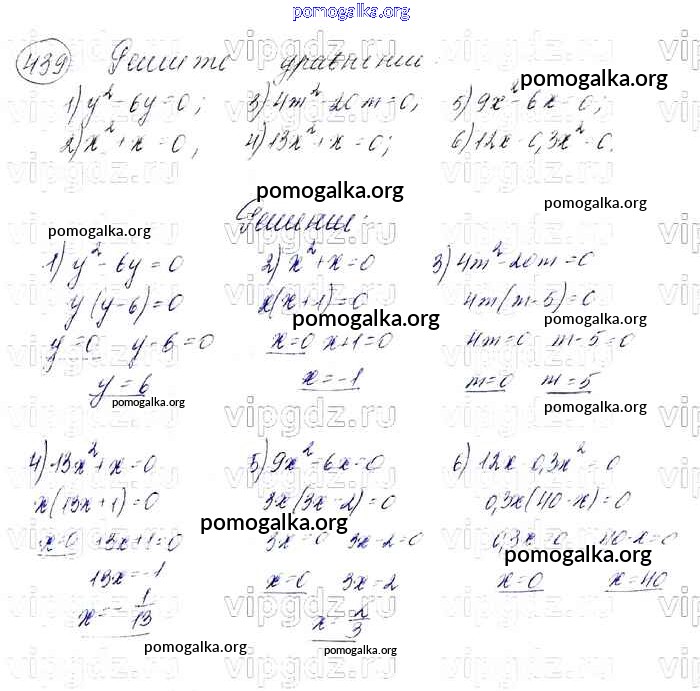 pomogalka.org
439 Решите уравнении:
1) y² - 6y = 0; 3) 4m² - 20m = 0; 5) 9x² - 6x = 0;
pomogalka.org
2) x² + x = 0; 4) 13x² + x = 0; 6) 12x - 0,3x² = 0.
pomogalka.org
Решении:
pomogalka.org pomogalka.org
1) y² - 6y = 0 2) x² + x = 0 3) 4m² - 20m = 0
y (y - 6) = 0 x(x + 1) = 0 4m(m - 5) = 0
pomogalka.org pomogalka.org
y = 0 y - 6 = 0 x = 0 x + 1 = 0 4m = 0 m - 5 = 0
y = 6 x = -1 m = 0 m = 5
pomogalka.org pomogalka.org
4) 13x² + x = 0 5) 9x² - 6x = 0 6) 12x 0,3x² = 0
x(13x + 1) = 0 3x(3x - 2) = 0 0,3x(40 - x) = 0
pomogalka.org
x = 0 13x + 1 = 0 3x = 0 3x - 2 = 0 0,3x = 0 40 - x = 0
pomogalka.org
13x = -1 x = 0 3x = 2 x = 0 x = 40
x = - 1/13 x = 2/3
pomogalka.org pomogalka.org
vipgdz.ru